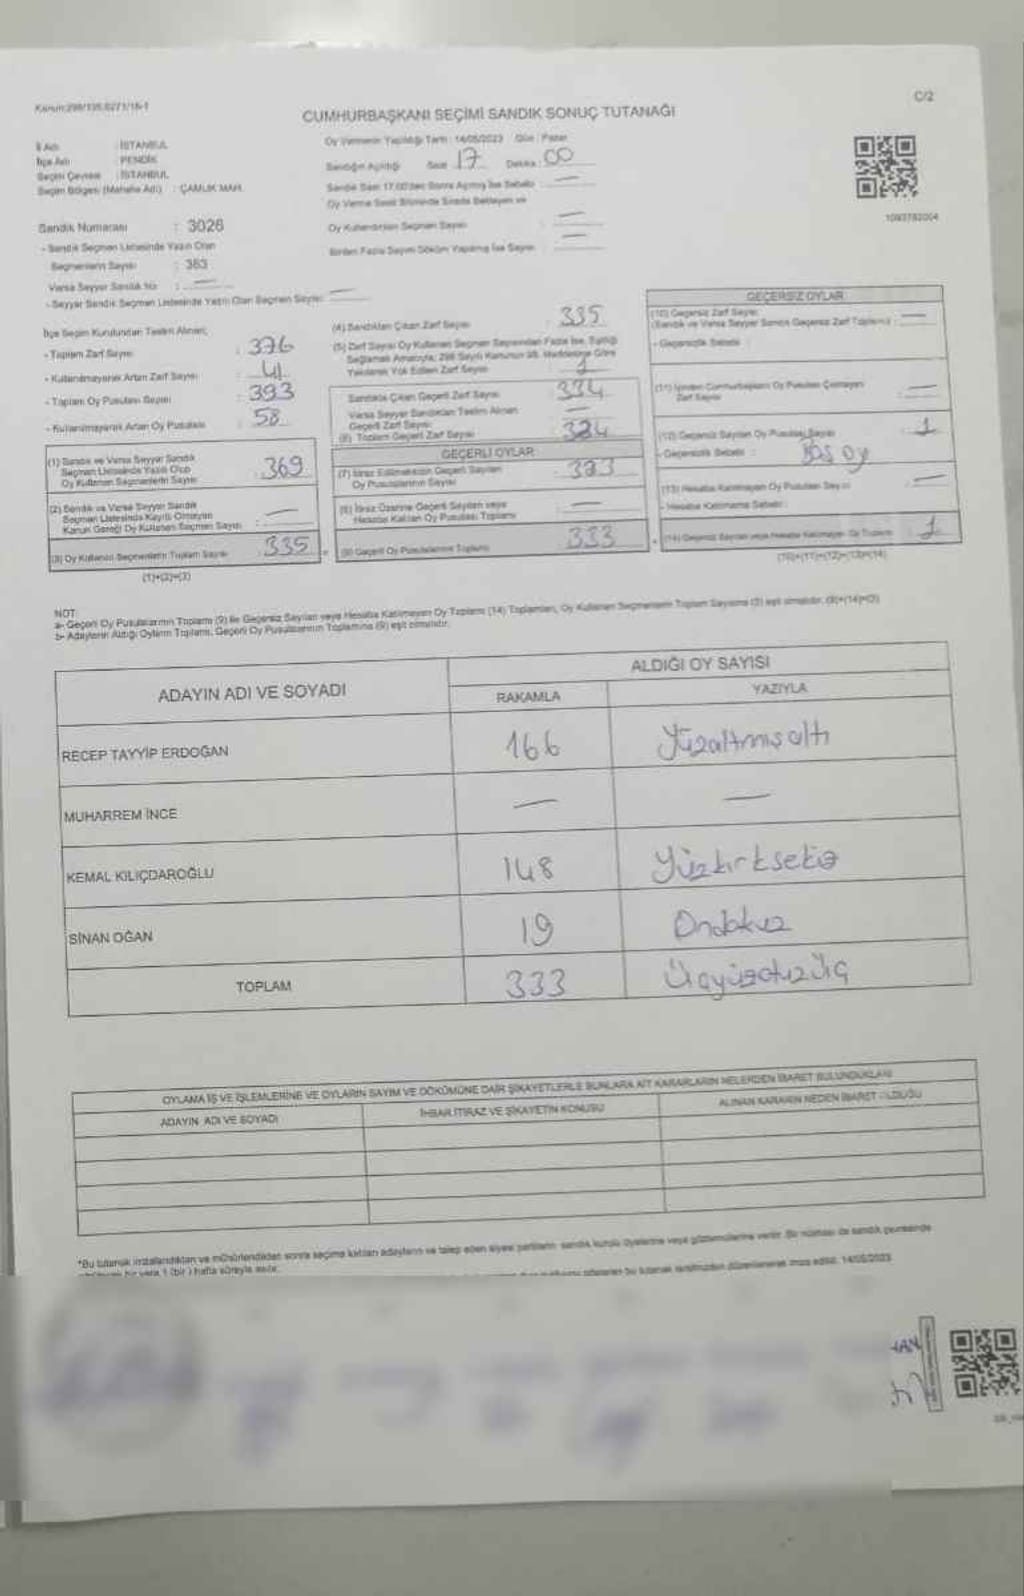 Kanun:298/105.0271/16-1
C/2
CUMHURBAŞKANI SEÇİMİ SANDIK SONUÇ TUTANAĞI
İl Adı : İSTANBUL
İlçe Adı : PENDİK
Seçim Çevresi : İSTANBUL
Seçim Bölgesi (Mahalle Adı) : ÇAMLIK MAH.
Oy Vermenin Yapıldığı Tarih : 14/05/2023 Gün : Pazar
Sandığın Açıldığı Saat : 17 Dakika : 00
Sandık Saat 17.00'den Sonra Açılmış İse Sebebi : —
Oy Verme Saati Bitiminde Sırada Bekleyen ve
Oy Kullandırılan Seçmen Sayısı : —
Birden Fazla Sayım Döküm Yapılmış İse Sayısı : —
1093782004
Sandık Numarası : 3026
- Sandık Seçmen Listesinde Yazılı Olan
Seçmenlerin Sayısı : 383
Varsa Seyyar Sandık No : —
- Seyyar Sandık Seçmen Listesinde Yazılı Olan Seçmen Sayısı: —
İlçe Seçim Kurulundan Teslim Alınan;
- Toplam Zarf Sayısı : 376
- Kullanılmayarak Artan Zarf Sayısı : 41
- Toplam Oy Pusulası Sayısı : 393
- Kullanılmayarak Artan Oy Pusulası : 58
(1) Sandık ve Varsa Seyyar Sandık
Seçmen Listesinde Yazılı Olup
Oy Kullanan Seçmenlerin Sayısı : 369
(2) Sandık ve Varsa Seyyar Sandık
Seçmen Listesinde Kayıtlı Olmayan
Kanun Gereği Oy Kullanan Seçmen Sayısı : —
(3) Oy Kullanan Seçmenlerin Toplam Sayısı : 335
(1)+(2)=(3)
(4) Sandıktan Çıkan Zarf Sayısı : 335
(5) Zarf Sayısı Oy Kullanan Seçmen Sayısından Fazla İse, Eşitliği
Sağlamak Amacıyla, 298 Sayılı Kanunun 98. Maddesine Göre
Yakılarak Yok Edilen Zarf Sayısı : 1
Sandıkta Çıkan Geçerli Zarf Sayısı : 334
Varsa Seyyar Sandıktan Teslim Alınan
Geçerli Zarf Sayısı : —
(6) Toplam Geçerli Zarf Sayısı : 334
GEÇERLİ OYLAR
(7) İtiraz Edilmeksizin Geçerli Sayılan
Oy Pusulalarının Sayısı : 333
(8) İtiraz Üzerine Geçerli Sayılan veya
Hesaba Katılan Oy Pusulası Toplamı : —
(9) Geçerli Oy Pusulalarının Toplamı : 333
GEÇERSİZ OYLAR
(10) Geçersiz Zarf Sayısı
(Sandık ve Varsa Seyyar Sandık Geçersiz Zarf Toplamı) : —
- Geçersizlik Sebebi :
(11) İçinden Cumhurbaşkanı Oy Pusulası Çıkmayan
Zarf Sayısı : —
(12) Geçersiz Sayılan Oy Pusulası Sayısı : 1
- Geçersizlik Sebebi : Boş oy
(13) Hesaba Katılmayan Oy Pusulası Sayısı : —
- Hesaba Katılmama Sebebi :
(14) Geçersiz Sayılan veya Hesaba Katılmayan Oy Toplamı : 1
(10)+(11)+(12)+(13)=(14)
NOT:
a- Geçerli Oy Pusulalarının Toplamı (9) ile Geçersiz Sayılan veya Hesaba Katılmayan Oy Toplamı (14) Toplamları, Oy Kullanan Seçmenlerin Toplam Sayısına (3) eşit olmalıdır. (9)+(14)=(3)
b- Adayların Aldığı Oyların Toplamı, Geçerli Oy Pusulalarının Toplamına (9) eşit olmalıdır.
ADAYIN ADI VE SOYADI
ALDIĞI OY SAYISI
RAKAMLA YAZIYLA
RECEP TAYYİP ERDOĞAN 166 Yüzaltmışaltı
MUHARREM İNCE — —
KEMAL KILIÇDAROĞLU 148 Yüzkırksekiz
SİNAN OĞAN 19 Ondokuz
TOPLAM 333 Üçyüzotuzüç
OYLAMA İŞ VE İŞLEMLERİNE VE OYLARIN SAYIM VE DÖKÜMÜNE DAİR ŞİKAYETLERLE BUNLARA AİT KARARLARIN NELERDEN İBARET BULUNDUKLARI
ADAYIN ADI VE SOYADI İHBAR İTİRAZ VE ŞİKAYETİN KONUSU ALINAN KARARIN NEDEN İBARET OLDUĞU
*Bu tutanak imzalandıktan ve mühürlendikten sonra seçime katılan adayların ve talep eden siyasi partilerin sandık kurulu üyelerine veya gözlemcilerine verilir. Bir nüshası da sandık çevresinde
bir yere 1 (bir) hafta süreyle asılır.
bu tutanak tarafımızdan düzenlenerek imza edildi. 14/05/2023